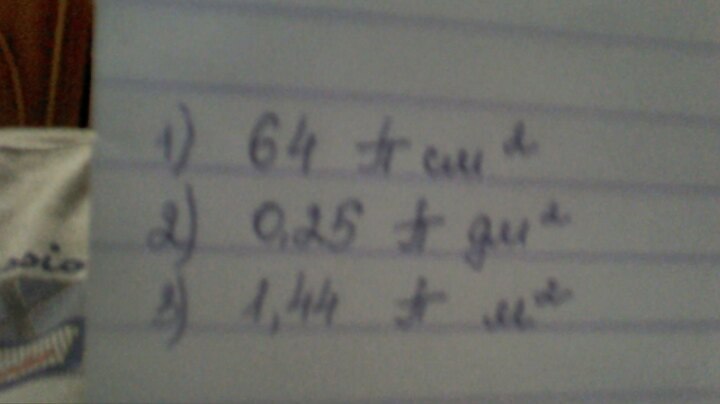 1) 64 π см²
2) 0,25 π дм²
3) 1,44 π м²